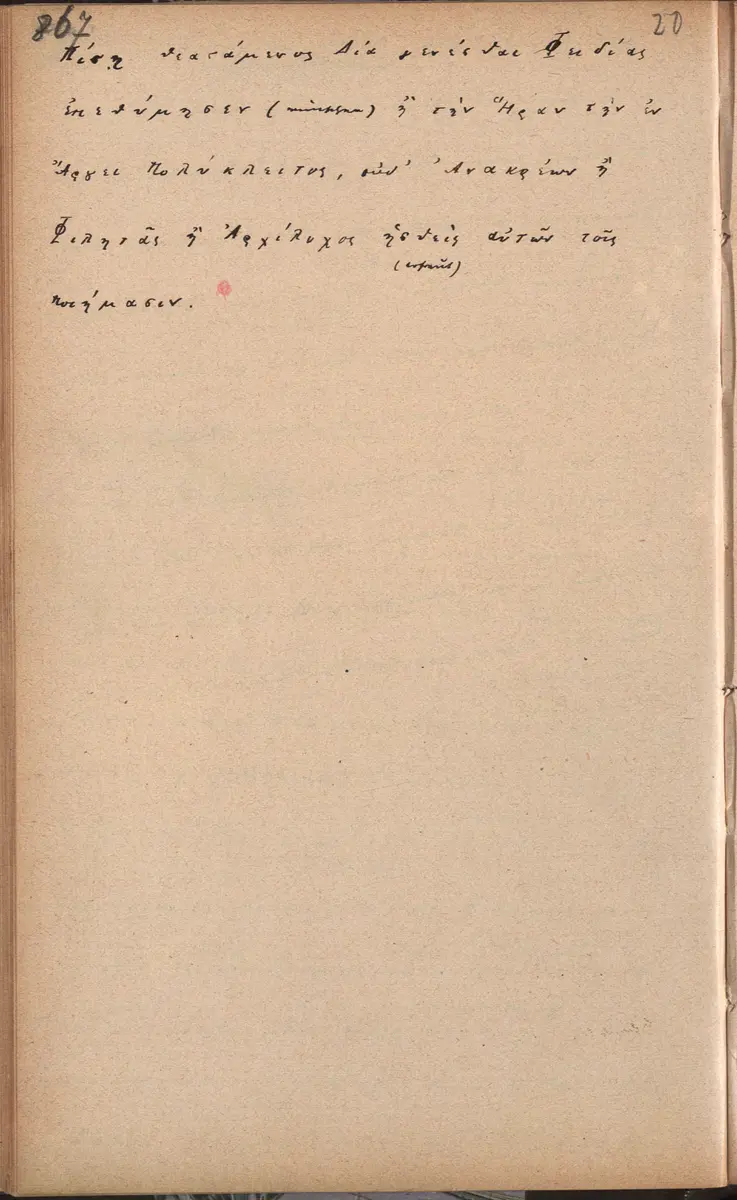 867 20
Πίσῃ θεασάμενος Δία γενέσθαι Φειδίας
ἐπεθύμησεν ( ) ἢ τὴν Ἥραν τὴν ἐν
Ἄργει Πολύκλειτος, οὐδ' Ἀνακρέων ἢ
Φιλητᾶς ἢ Ἀρχίλοχος ἡσθεὶς αὐτῶν τοῖς
(erfreut)
ποιήμασιν.